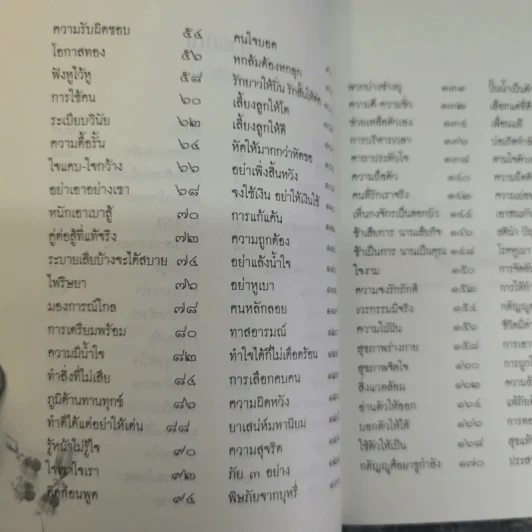 ความรับผิดชอบ ๕๔
โอกาสทอง ๕๖
ฟังหูไว้หู ๕๘
การใช้คน ๖๐
ระเบียบวินัย ๖๒
ความดื้อรั้น ๖๔
ใจแคบ-ใจกว้าง ๖๖
อย่าเอาอย่างเขา ๖๘
หนักเอาเบาสู้ ๗๐
คู่ต่อสู้ที่แท้จริง ๗๒
ระบายเสียบ้างจะได้สบาย ๗๔
ไฟริษยา ๗๖
มองการณ์ไกล ๗๘
การเตรียมพร้อม ๘๐
ความมีน้ำใจ ๘๒
ทำสิ่งที่ไม่เสีย ๘๔
ภูมิต้านทานทุกข์ ๘๖
ทำดีได้แต่อย่าให้เด่น ๘๘
รู้หน้าไม่รู้ใจ ๙๐
ใจเขาใจเรา ๙๒
คิดก่อนพูด ๙๔
คนใจบอด
หกล้มต้องหกลุก
รักยาวให้บั่น รักสั้นให้ต่อ
เลี้ยงลูกให้โต
เลี้ยงลูกให้ดี
หัดให้มากกว่าหัดขอ
อย่าเพิ่งสิ้นหวัง
จงใช้เงิน อย่าให้เงินใช้
การแก้แค้น
ความถูกต้อง
อย่าแล้งน้ำใจ
อย่าหูเบา
คนหลักลอย
ทาสอารมณ์
ทำใจได้ก็ไม่เดือดร้อน
การเลือกคบคน
ความผิดหวัง
ยาเสน่ห์มหานิยม
ความสุจริต
ภัย ๓ อย่าง
พิษภัยจากบุหรี่
ความดี-ความชั่ว ๑๓๒
ช่วยเหลือตัวเอง ๑๓๔
การบริหารเวลา ๑๓๖
คาถาประทับใจ ๑๓๘
ความถือตัว ๑๔๐
คนที่รักเราจริง ๑๔๒
เห็นกงจักรเป็นดอกบัว ๑๔๔
ช้าเสียการ นานเสียกิจ ๑๔๖
ช้าเป็นการ นานเป็นคุณ ๑๔๘
ใจงาม ๑๕๐
ความจงรักภักดี ๑๕๒
เวรกรรมมีจริง ๑๕๔
ความใฝ่ฝัน ๑๕๖
สุขภาพร่างกาย ๑๕๘
สุขภาพจิตใจ ๑๖๐
สิ่งแวดล้อม ๑๖๒
อ่านตัวให้ออก ๑๖๔
บอกตัวให้ได้ ๑๖๖
ใช้ตัวให้เป็น ๑๖๘
กตัญญูคือยาชูกำลัง ๑๗๐